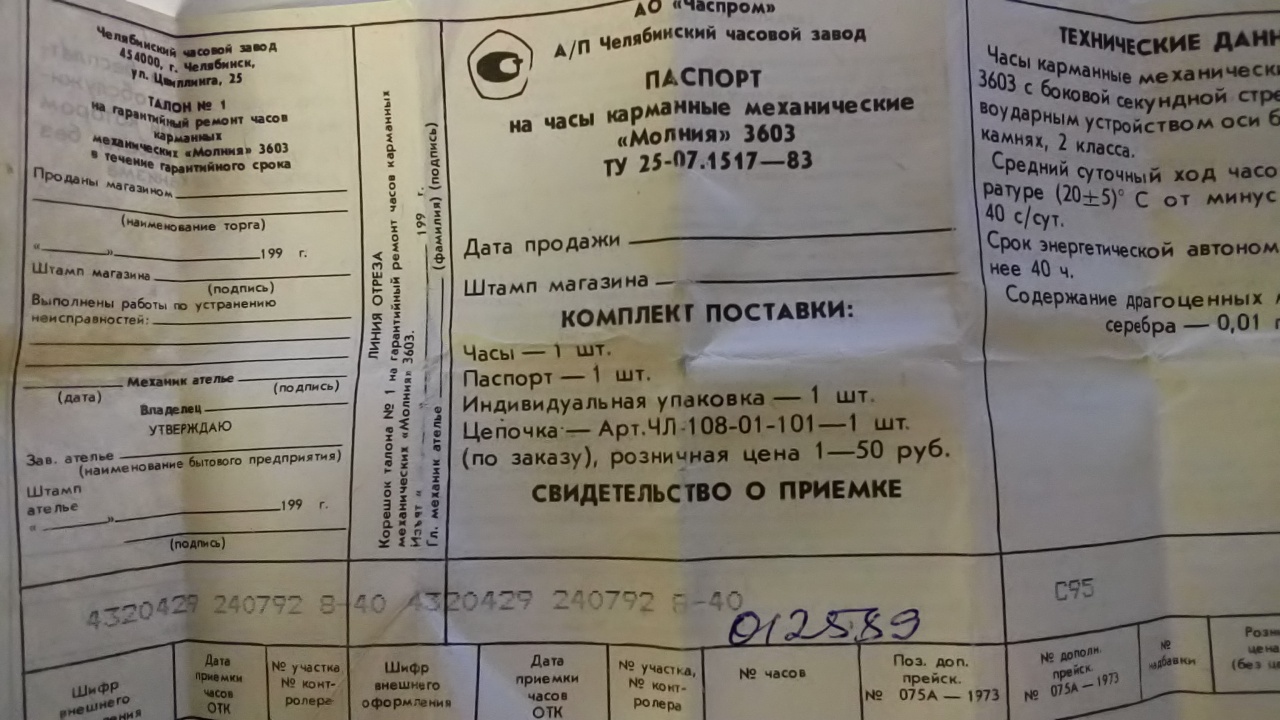 Челябинский часовой завод
454000, г. Челябинск,
ул. Цвиллинга, 25
ТАЛОН № 1
на гарантийный ремонт часов
карманных
механических «Молния» 3603
в течение гарантийного срока
Проданы магазином
(наименование торга)
« » 199 г.
Штамп магазина
(подпись)
Выполнены работы по устранению
неисправностей:
Механик ателье
(дата) (подпись)
Владелец
УТВЕРЖДАЮ
Зав. ателье
(наименование бытового предприятия)
Штамп
ателье
« » 199 г.
(подпись)
ЛИНИЯ ОТРЕЗА
Корешок талона № 1 на гарантийный ремонт часов карманных
механических «Молния» 3603.
Изъят « » 199 г.
Гл. механик ателье (фамилия) (подпись)
АО «Часпром»
А/П Челябинский часовой завод
ПАСПОРТ
на часы карманные механические
«Молния» 3603
ТУ 25-07.1517—83
Дата продажи
Штамп магазина
КОМПЛЕКТ ПОСТАВКИ:
Часы — 1 шт.
Паспорт — 1 шт.
Индивидуальная упаковка — 1 шт.
Цепочка — Арт.ЧЛ-108-01-101—1 шт.
(по заказу), розничная цена 1—50 руб.
СВИДЕТЕЛЬСТВО О ПРИЕМКЕ
ТЕХНИЧЕСКИЕ ДАНН
Часы карманные механически
3603 с боковой секундной стре
воударным устройством оси б
камнях, 2 класса.
Средний суточный ход часо
ратуре (20±5)° С от минус
40 с/сут.
Срок энергетической автоном
нее 40 ч.
Содержание драгоценных
серебра — 0,01 г
4320429 240792 8-40 4320429 240792 8-40
012589
С95
Шифр
внешнего
Дата
приемки
часов
ОТК
№ участка
№ конт-
ролера
Шифр
внешнего
оформления
Дата
приемки
часов
ОТК
№ участка,
№ конт-
ролера
№ часов
Поз. доп.
прейск.
№ 075А — 1973
№ дополн.
прейск.
№ 075А — 1973
№
надбавки
Розн
цена
(без це